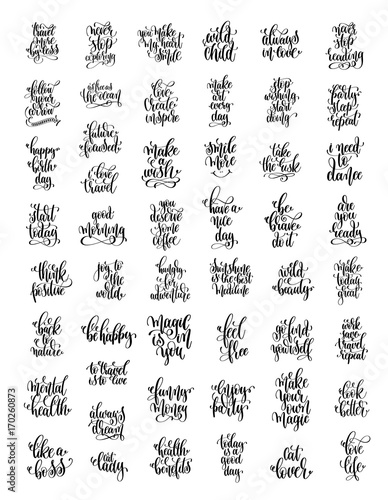 travel
more
worry less
never
stop
exploring
you make
my heart
smile
wild
child
always
in love
never
stop
reading
follow
your
arrow
as free as
the ocean
love
create
inspire
make
art
every
day
stop
wishing
start
doing
party
sleep
repeat
future
focused
happy
birth
day
i love
travel
make
a
wish
smile
more
take
the risk
i need
to
dance
start
today
good
morning
you
deserve
some
coffee
have a
nice
day
be
brave
do it
are
you
ready
think
positive
joy to
the
world
hungry
for
adventure
sunshine
is the best
medicine
wild
beauty
make
today
great
back
to
nature
be happy
magic
is on
you
feel
free
find
yourself
work
save
travel
repeat
to travel
is to live
mental
health
always
dream
funny
money
enjoy
party
make
your
own
magic
look
better
like a
boss
cat
lady
health
benefits
today
is a
good
day
cat
lover
love
life
170260873